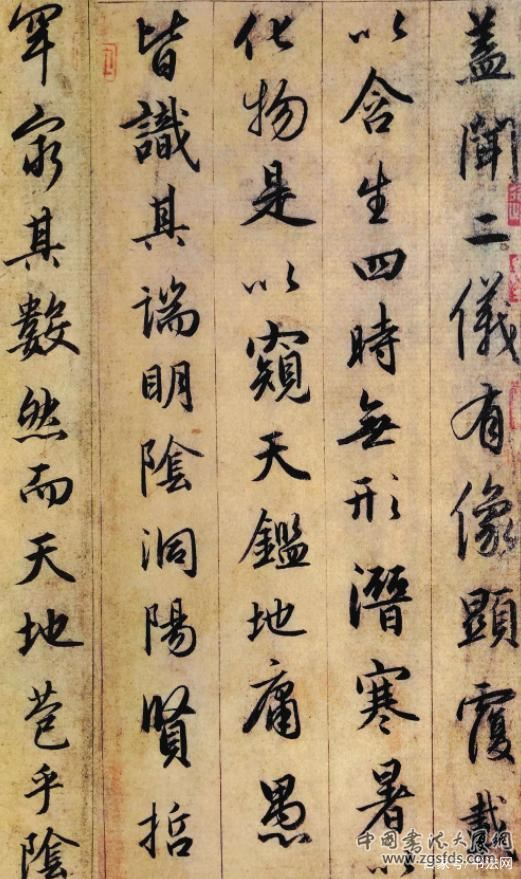 盖闻二儀有像顯覆載
以含生四時無形潛寒暑以
化物是以窺天鑑地庸愚
皆識其端明陰洞陽賢哲
罕窮其數然而天地苞乎陰
中国书法大展网
www.zgsfds.com